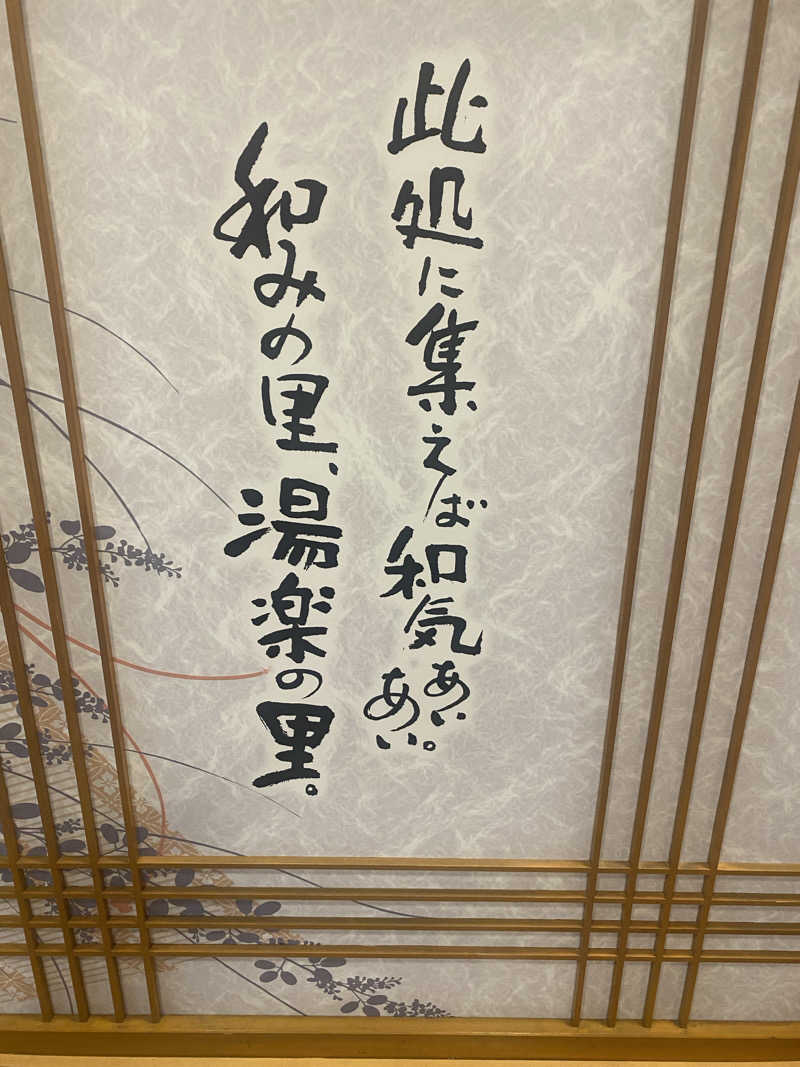 此処に集えば和気あいあい。
和みの里、湯楽の里。